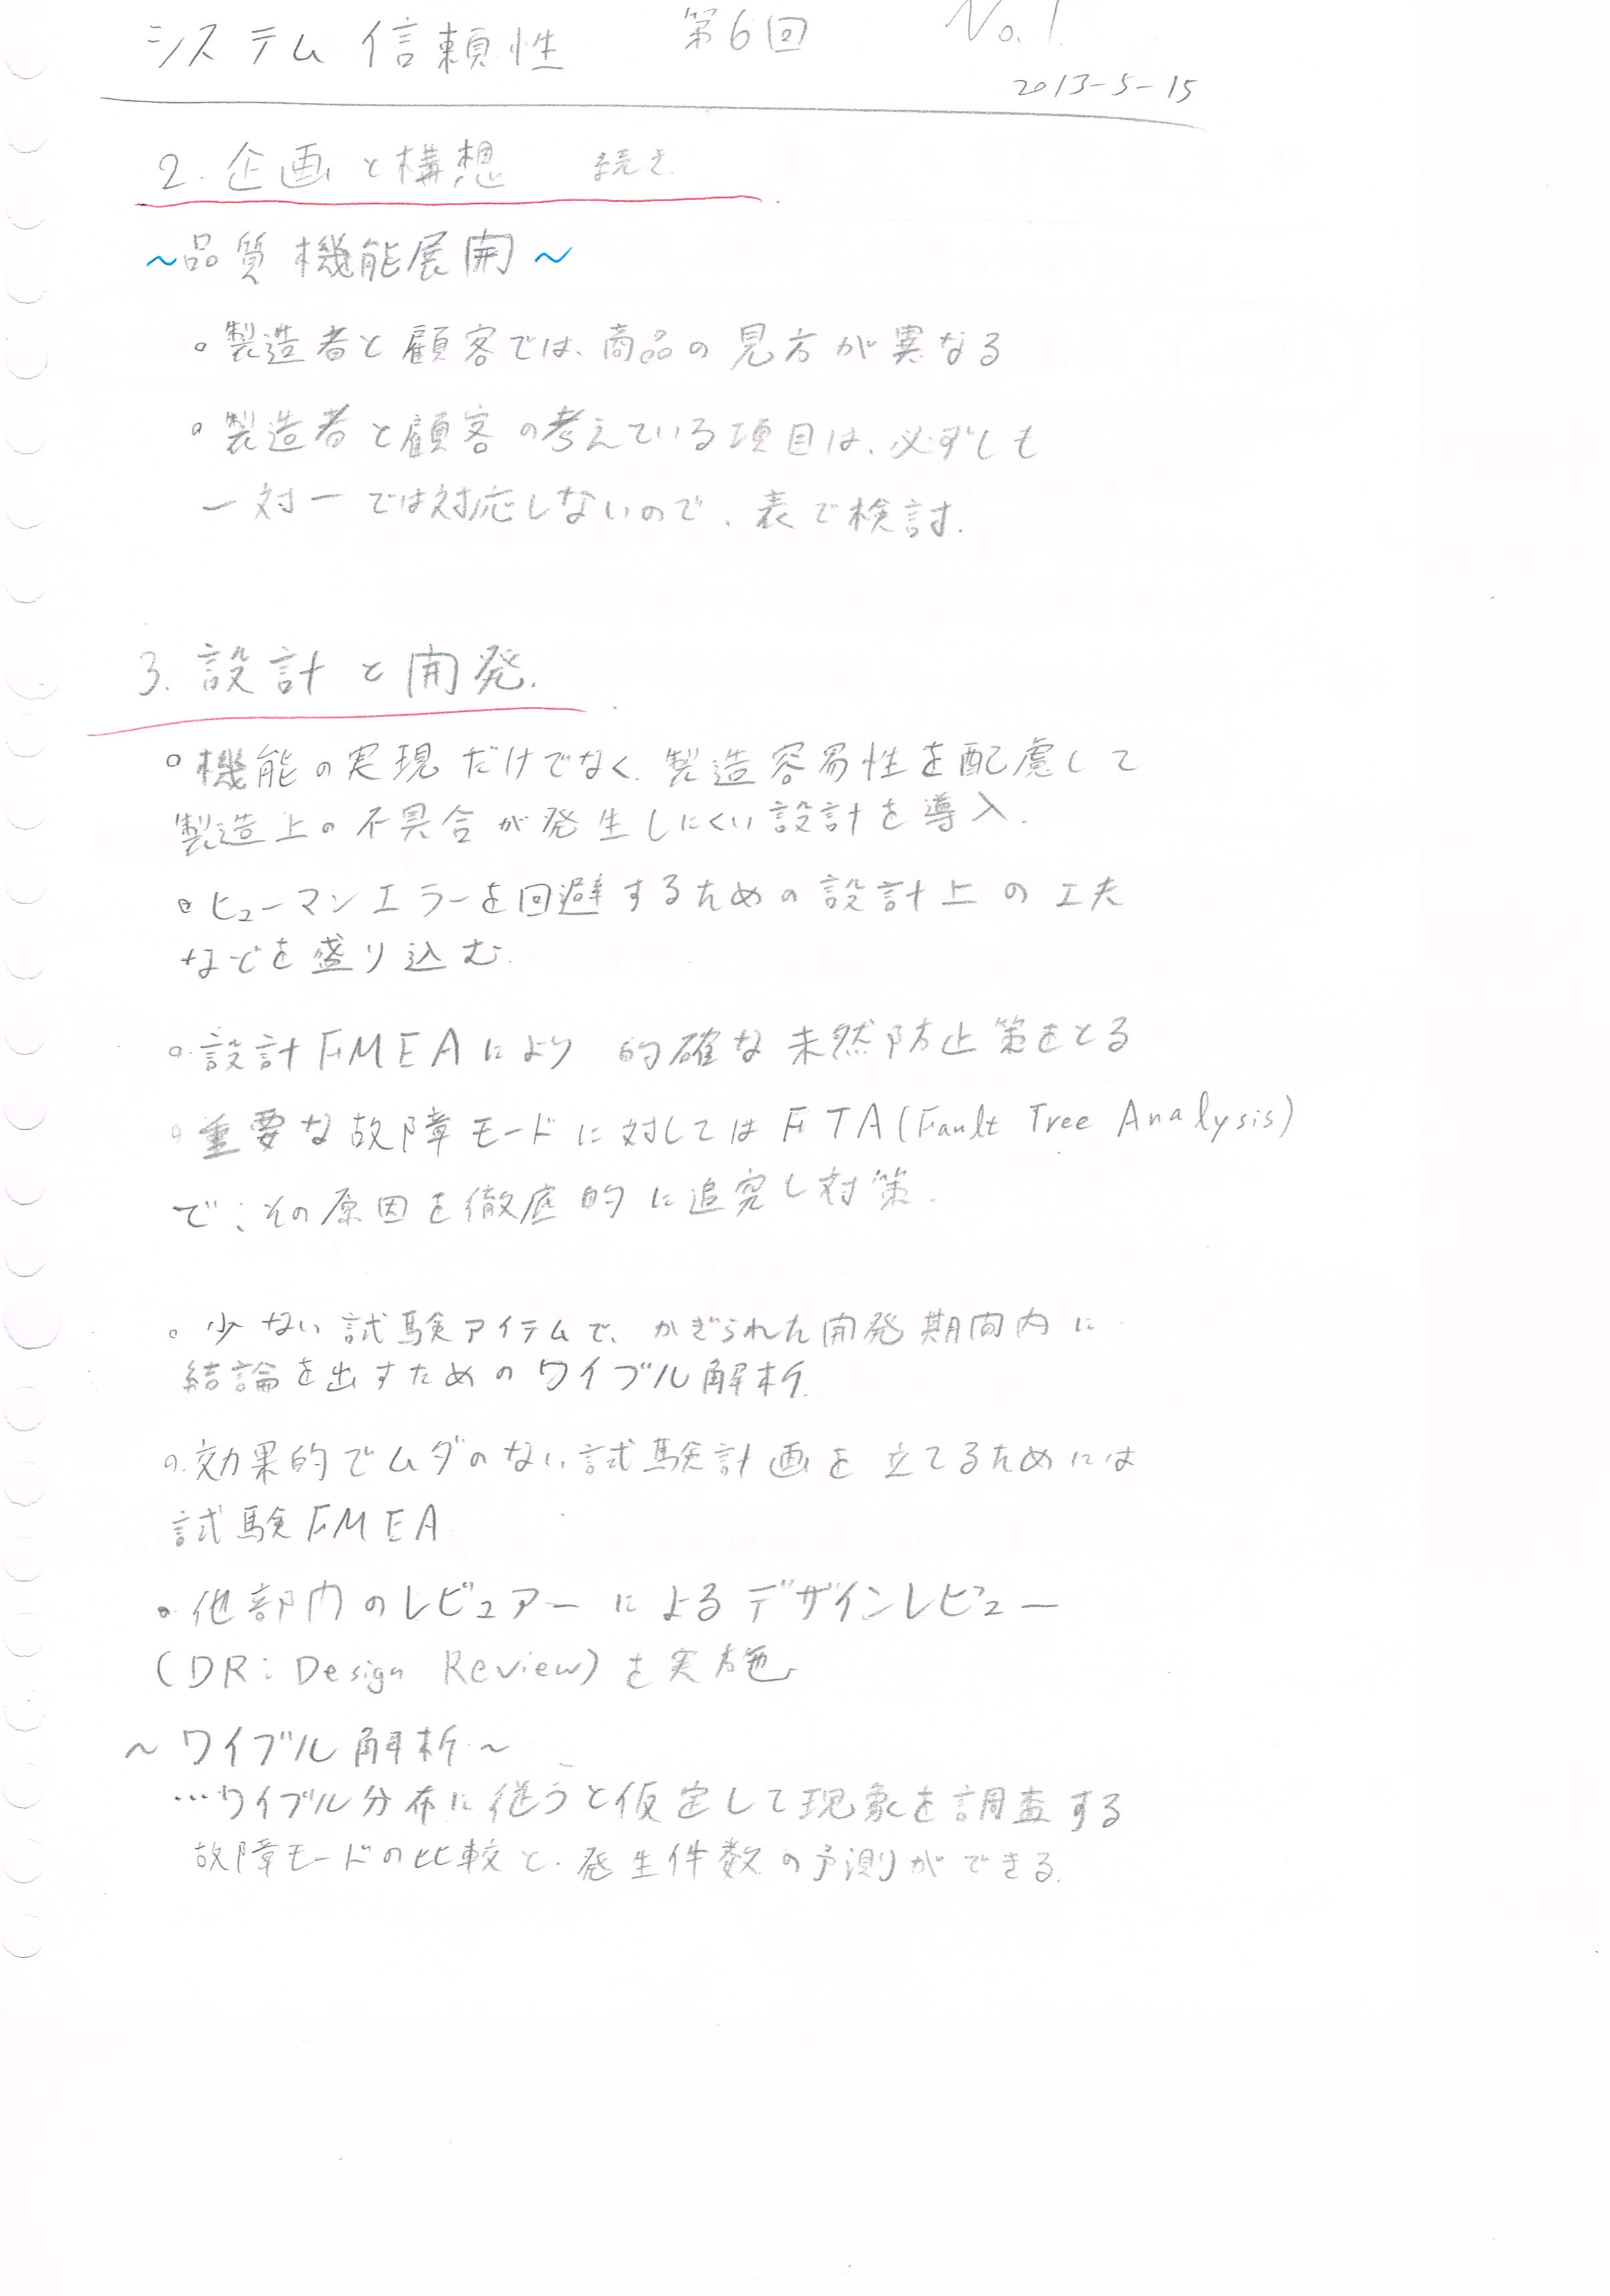 システム信頼性 第6回 No.1
2013-5-15
2. 企画と構想 続き.
~品質機能展開~
。製造者と顧客では、商品の見方が異なる
。製造者と顧客の考えている項目は、必ずしも
一対一では対応しないので、表で検討.
3. 設計と開発.
。機能の実現だけでなく、製造容易性を配慮して
製造上の不具合が発生しにくい設計を導入.
。ヒューマンエラーを回避するための設計上の工夫
などを盛り込む.
。設計FMEAにより的確な未然防止策をとる
。重要な故障モードに対してはFTA(Fault Tree Analysis)
で、その原因を徹底的に追究し対策.
。少ない試験アイテムで、かぎられた開発期間内に
結論を出すためのワイブル解析.
。効果的でムダのない試験計画を立てるためには
試験FMEA
。他部門のレビュアーによるデザインレビュー
(DR:Design Review)を実施
~ワイブル解析~
…ワイブル分布に従うと仮定して現象を調査する
故障モードの比較と、発生件数の予測ができる.